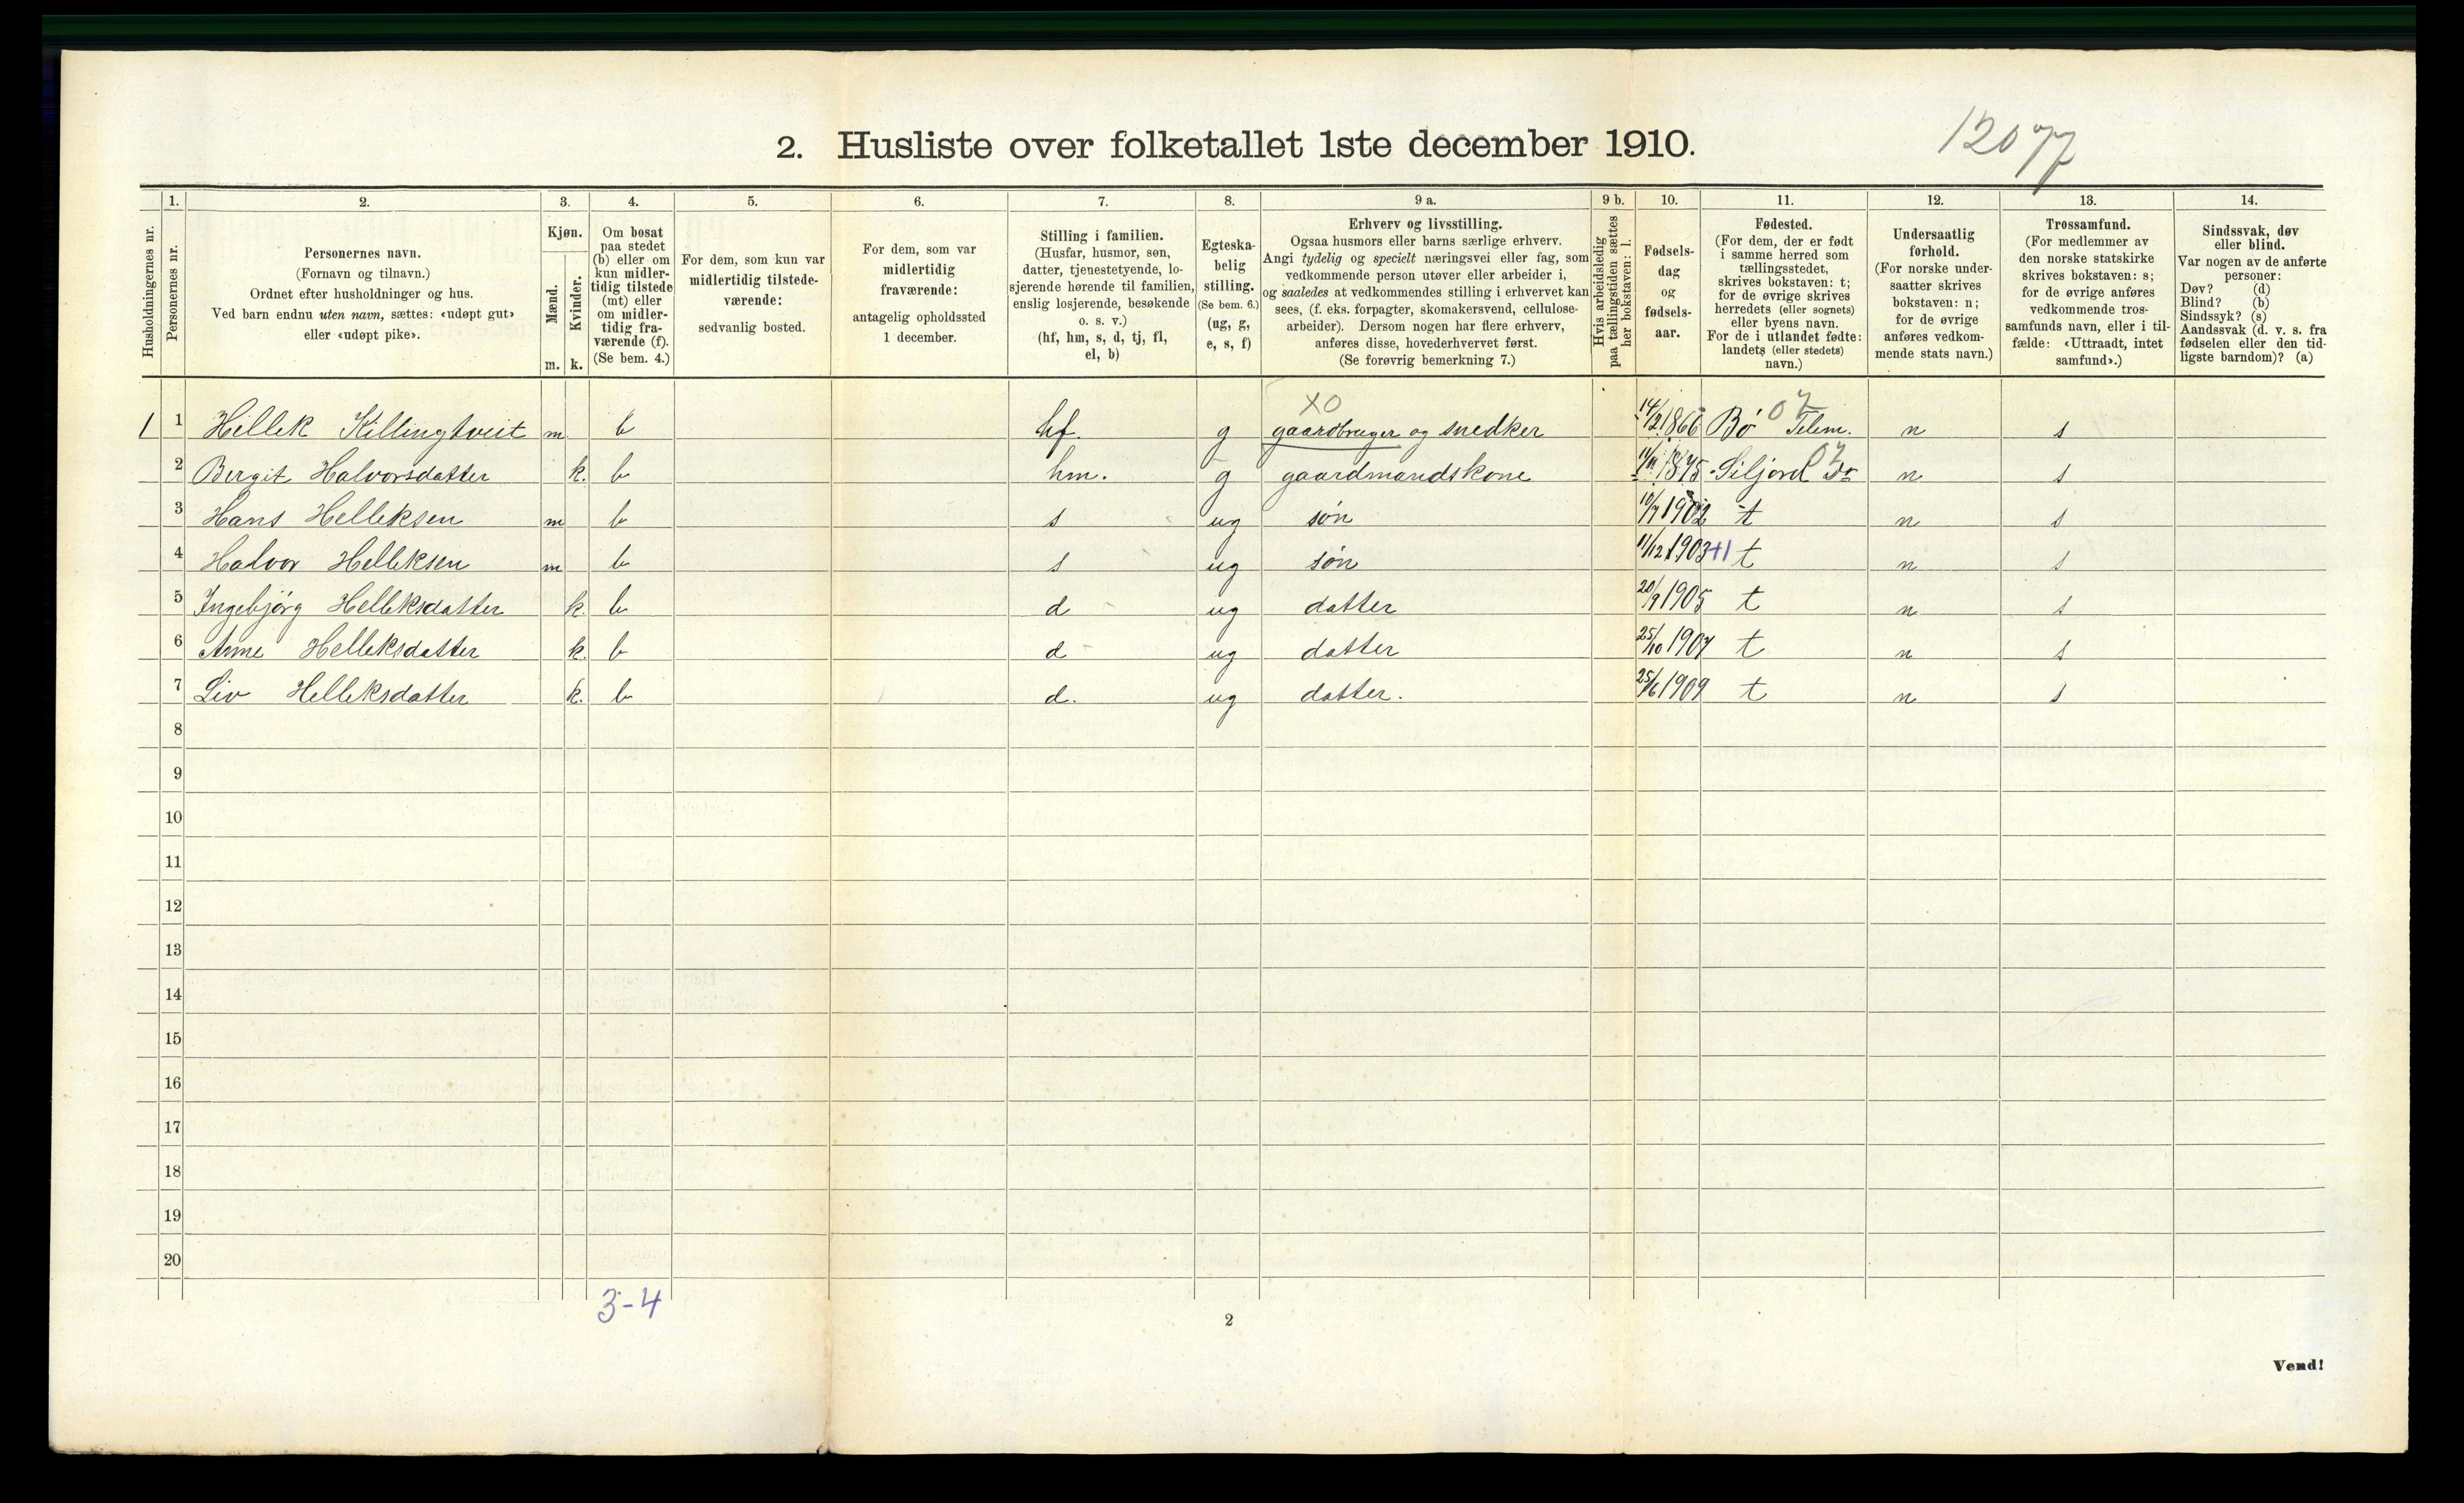 12077
2. Husliste over folketallet 1ste december 1910.
Husholdningernes nr.
1. Personernes nr.
2. Personernes navn.
(Fornavn og tilnavn.)
Ordnet efter husholdninger og hus.
Ved barn endnu uten navn, sættes: «udøpt gut»
eller «udøpt pike».
3. Kjøn.
Mænd. Kvinder.
m. k.
4. Om bosat
paa stedet
(b) eller om
kun midler-
tidig tilstede
(mt) eller
om midler-
tidig fra-
værende (f).
(Se bem. 4.)
5. For dem, som kun var
midlertidig tilstede-
værende:
sedvanlig bosted.
6. For dem, som var
midlertidig
fraværende:
antagelig opholdssted
1 december.
7. Stilling i familien.
(Husfar, husmor, søn,
datter, tjenestetyende, lo-
sjerende hørende til familien,
enslig losjerende, besøkende
o. s. v.)
(hf, hm, s, d, tj, fl,
el, b)
8. Egteska-
belig
stilling.
(Se bem. 6.)
(ug, g,
e, s, f)
9 a. Erhverv og livsstilling.
Ogsaa husmors eller barns særlige erhverv.
Angi tydelig og specielt næringsvei eller fag, som
vedkommende person utøver eller arbeider i,
og saaledes at vedkommendes stilling i erhvervet kan
sees, (f. eks. forpagter, skomakersvend, cellulose-
arbeider). Dersom nogen har flere erhverv,
anføres disse, hovederhvervet først.
(Se forøvrig bemerkning 7.)
9 b. Hvis arbeidsledig
paa tællingstiden sættes
her bokstaven: l.
10. Fødsels-
dag
og
fødsels-
aar.
11. Fødested.
(For dem, der er født
i samme herred som
tællingsstedet,
skrives bokstaven: t;
for de øvrige skrives
herredets (eller sognets)
eller byens navn.
For de i utlandet fødte:
landets (eller stedets)
navn.)
12. Undersaatlig
forhold.
(For norske under-
saatter skrives
bokstaven: n;
for de øvrige
anføres vedkom-
mende stats navn.)
13. Trossamfund.
(For medlemmer av
den norske statskirke
skrives bokstaven: s;
for de øvrige anføres
vedkommende tros-
samfunds navn, eller i til-
fælde: «Uttraadt, intet
samfund».)
14. Sindssvak, døv
eller blind.
Var nogen av de anførte
personer:
Døv? (d)
Blind? (b)
Sindssyk? (s)
Aandssvak (d. v. s. fra
fødselen eller den tid-
ligste barndom)? (a)
XO 07
1 1 Hellek Killingtveit m b hf. g gaardbruger og snedker 14/2 1866 Bø Telem. n s
07
2 Bergit Halvorsdatter k. b hm. g gaardmandskone 11/11 1875 Siljord do n s
3 Hans Helleksen m b s ug søn 10/7 1902 t n s
4 Halvor Helleksen m b s ug søn 11/12 1903 +1 t n s
5 Ingebjørg Helleksdatter k. b d ug datter 20/9 1905 t n s
6 Anne Helleksdatter k. b d ug datter 25/10 1907 t n s
7 Liv Helleksdatter k. b d. ug datter. 25/6 1909 t n s
8
9
10
11
12
13
14
15
16
17
18
19
20
3-4
2
Vend!